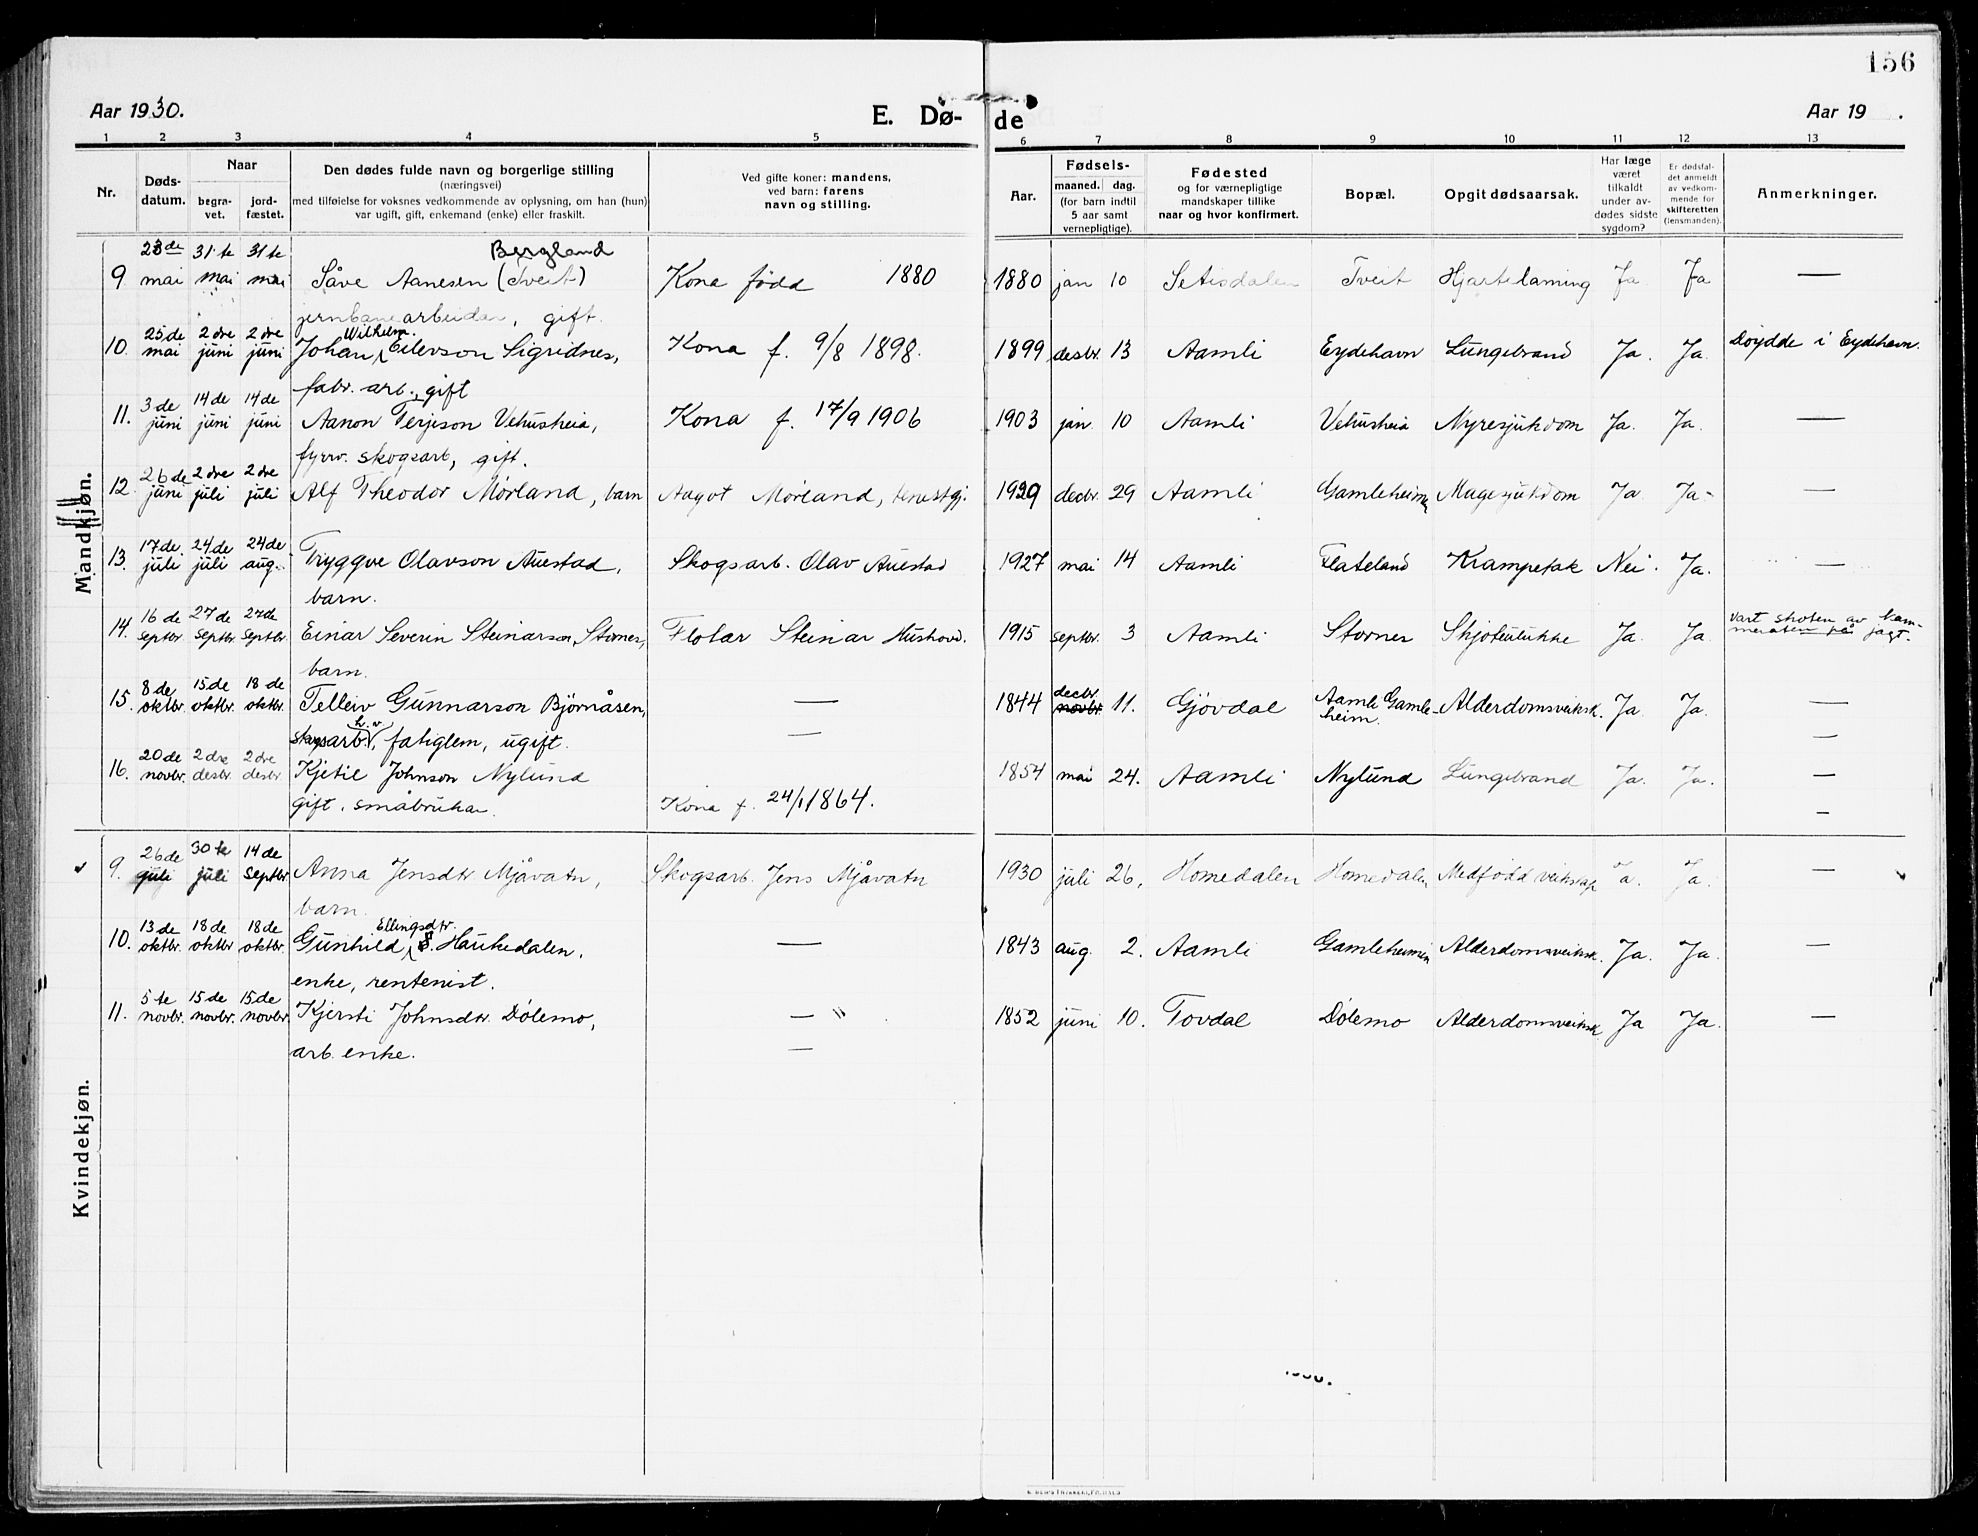 156
Aar 1930.
E. Dø- de
Aar 19 .
1 2 3 4 5 6 7 8 9 10 11 12 13
Nr.
Døds-
datum.
Naar
begra-
vet.
jord-
fæstet.
Den dødes fulde navn og borgerlige stilling
(næringsvei)
med tilføielse for voksnes vedkommende av oplysning, om han (hun)
var ugift, gift, enkemand (enke) eller fraskilt.
Ved gifte koner: mandens,
ved barn: farens
navn og stilling.
Aar.
Fødsels-
maaned. dag.
(for barn indtil
5 aar samt
vernepligtige).
Fødested
og for værnepligtige
mandskaper tillike
naar og hvor konfirmert.
Bopæl.
Opgit dødsaarsak.
Har læge
været
tilkaldt
under av-
dødes sidste
sygdom?
Er dødsfal-
det anmeldt
av vedkom-
mende for
skifteretten
(lensmanden).
Anmerkninger.
Mandkjøn.
23de 31te 31te Bergland
9. mai mai mai Såve Aanesen (Tveit) Kona fødd 1880 1880 jan 10 Setisdalen Tveit Hjartelaming Ja Ja —
jernbanearbeidar, gift.
25de 2dre 2dre Wilhelm.
10. mai juni juni Johan Eilevson Sigridnes, Kona f. 9/8 1898. 1899 desbr. 13 Aamli Eydehavn Lungebrand Ja. Ja. Døydde i Eydehavn.
fabr. arb., gift
3de 14de 14de
11. juni juni juni Aanon Terjeson Vehusheia, Kona f. 17/9 1906 1903 jan. 10 Aamli Vehusheia Nyresjukdom Ja. Ja. —
fyrrv. skogsarb, gift.
26de 2dre 2dre
12. juni juli juli Alf Theodor Mørland, barn Aagot Mørland, tenestgj. 1929 decbr. 29 Aamli Gamleheimen Magesjukdom Ja Ja —
17de 24de 24de
13. juli juli aug. Tryggve Olavson Auestad, Skogsarb. Olav Auestad 1927 mai 14 Aamli Flateland Krampetak Nei. Ja. —
barn.
16de 27de 27de
14. septbr septbr septbr. Einar Severin Steinarson Stornes, Flotar Steinar Hushovd. 1915 septbr. 3 Aamli Stornes Skjotulukke Ja. Ja. Vart skoten av kam-
meraten på jagt.
barn.
8de 15de 18de
15. oktbr. oktbr. oktbr. Telleiv Gunnarson Bjørnåsen, — 1844 decbr. novbr. 11. Gjøvdal Aamli Gamle-
heim. Alderdomsveiksk. Ja. Ja. —
skogsarb., fatiglem, ugift. — —
20de 2dre 2dre
16. novbr. desbr. desbr. Kjetil Johnson Nylund 1854 mai 24. Aamli Nylund Lungebrand Ja. Ja. —
gift, småbrukar. Kona f. 24/1 1864. —
Kvindekjøn.
26de 30te 14de
9. juli juli septbr Anna Jensdtr Mjåvatn, Skogsarb. Jens Mjåvatn 1930 juli 26. Homedalen Homedalen Medfødd veikskap Ja. Ja. —
barn.
13de 18de 18de Ellingsdtr.
10. oktbr. oktbr oktbr Gunhild Haukedalen, — 1843 aug. 2. Aamli Gamleheimen Alderdomsveiksk. Ja. Ja. —
enke, rentenist.
5te 15de 15de
11. novbr. novbr. novbr. Kjersti Johnsdtr Dølemo, — 1852 juni 10. Tovdal Dølemo Alderdomsveiksk Ja Ja. —
arb. enke. —